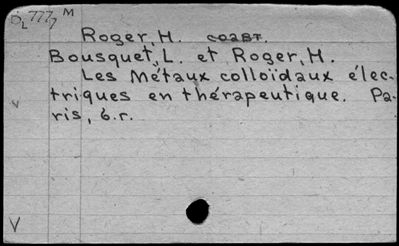 D₂777/7 M
Roger, H. соавт.
Bousquet, L. et Roger, H.
Les Métaux colloïdaux élec-
triques en thérapeutique. Pa-
ris, б.г.
V
V